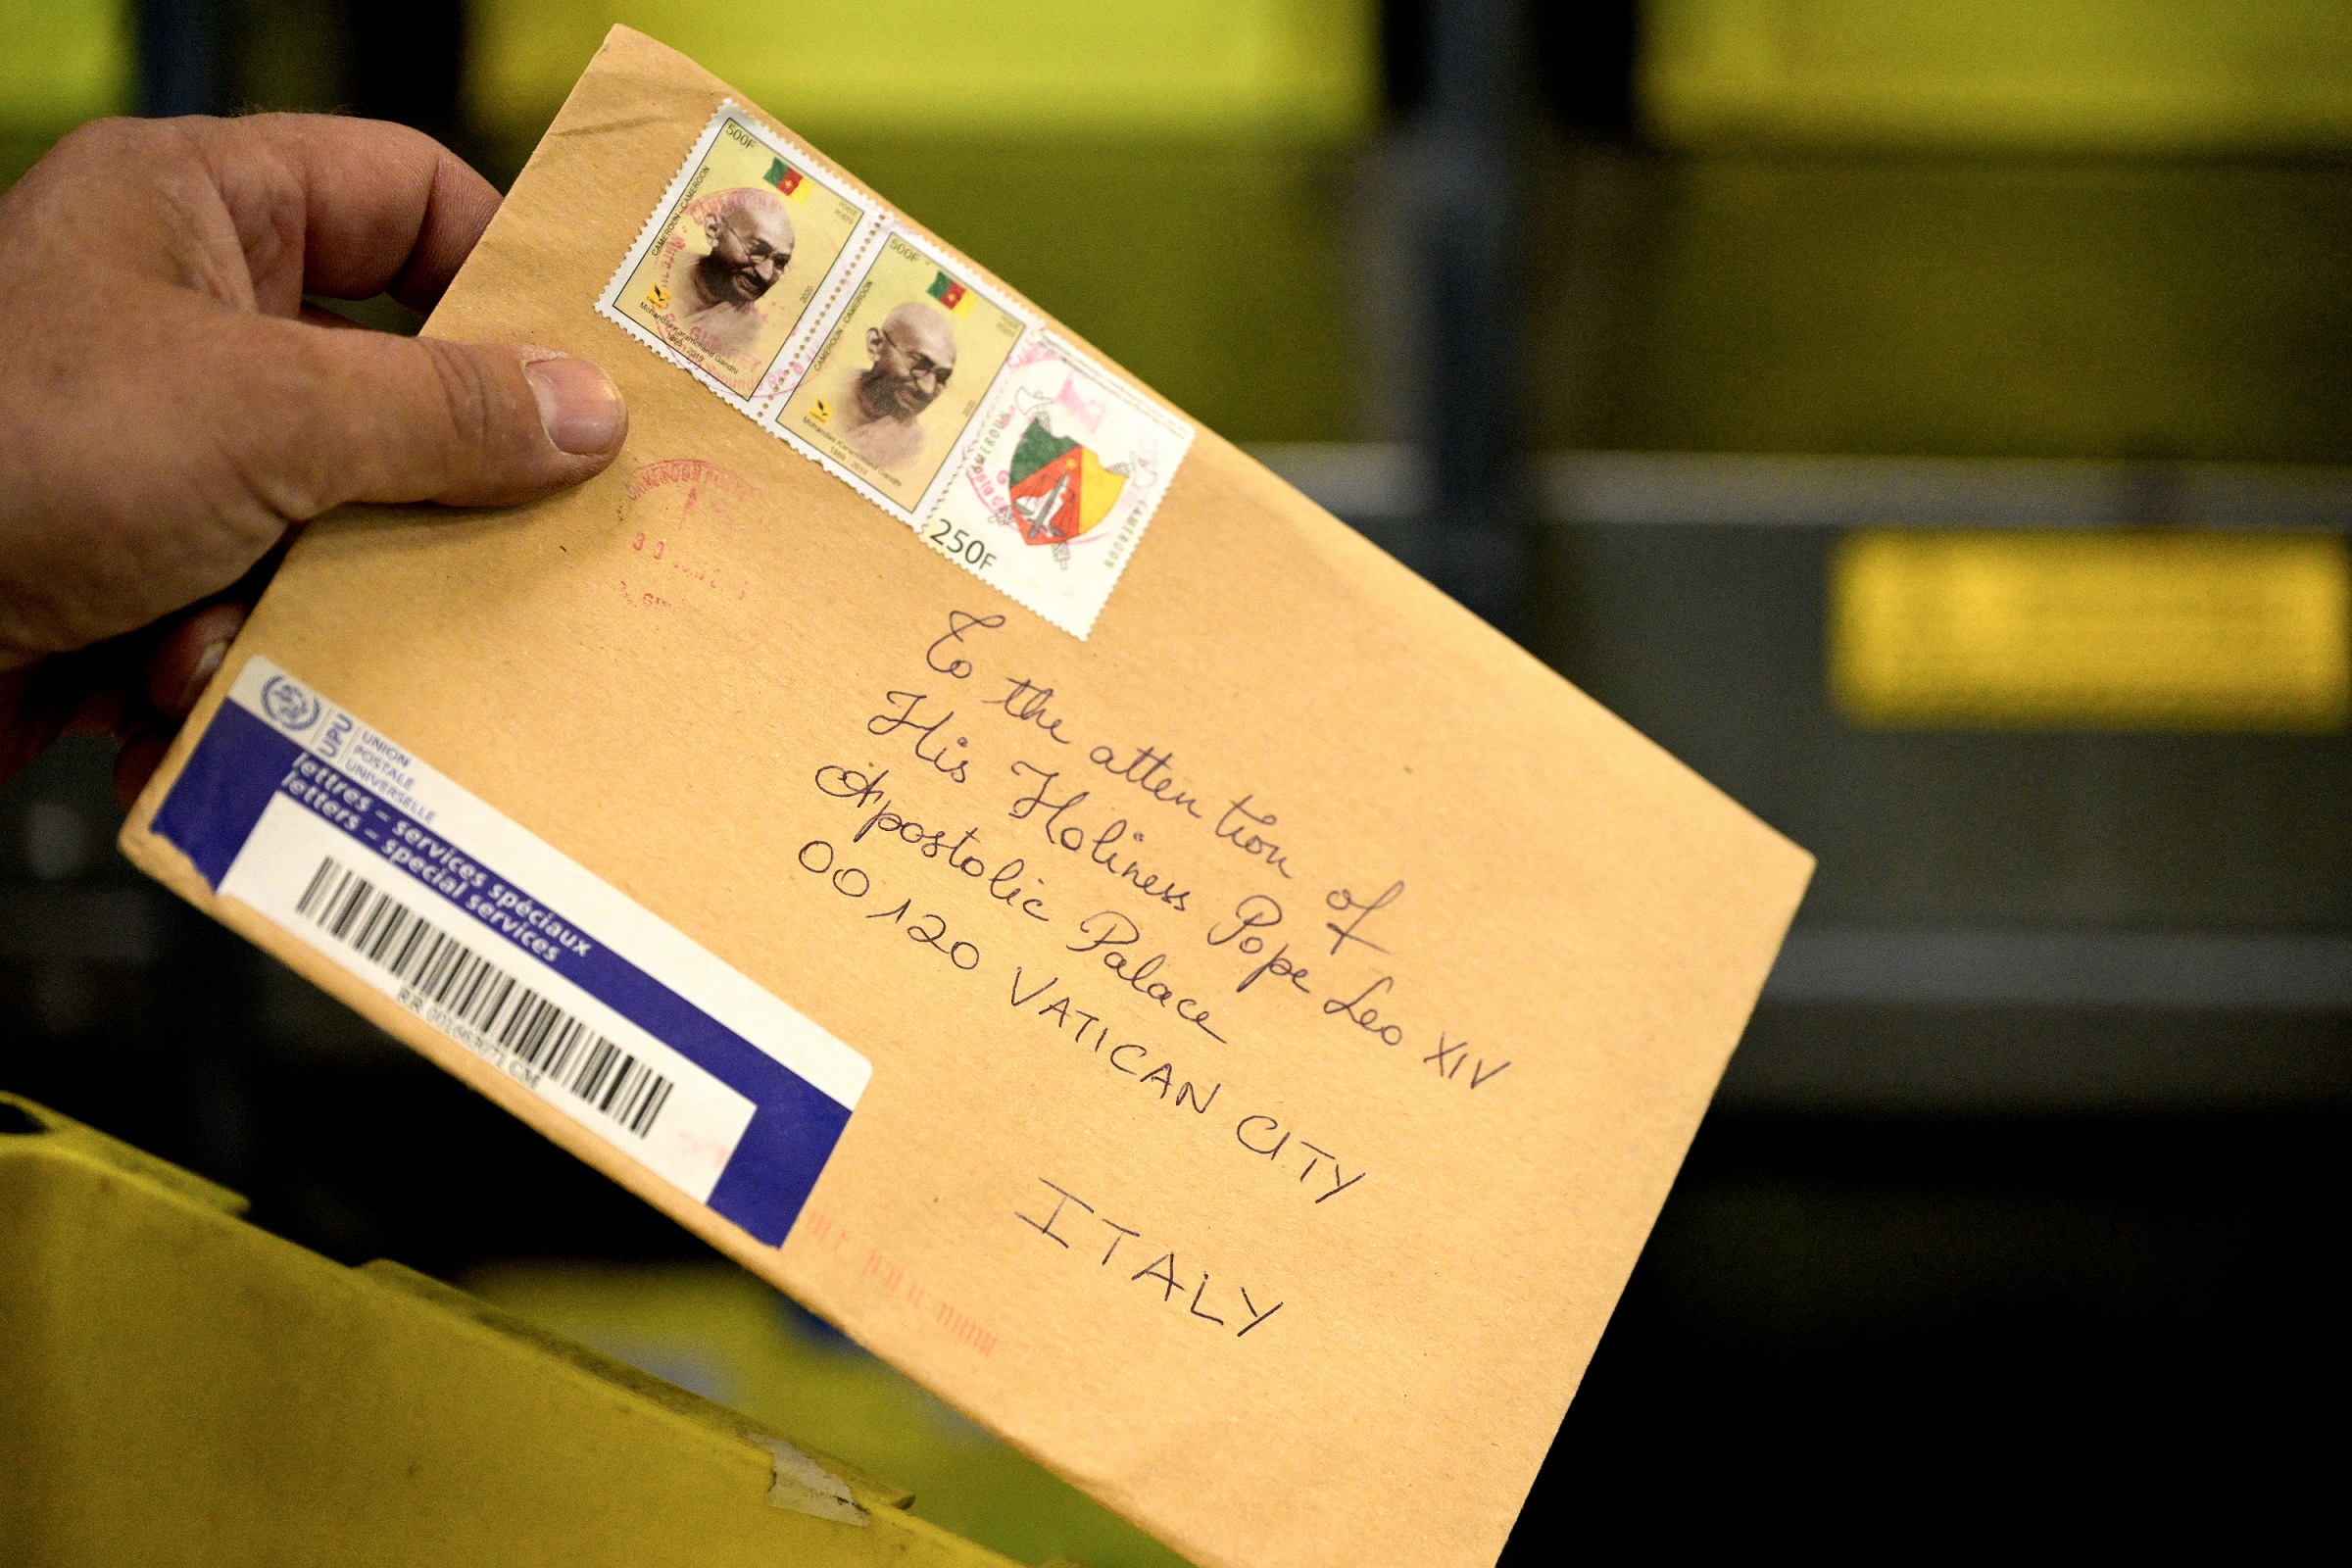 500F
CAMEROUN - CAMEROON
2020
Mohandas Karamchand Gandhi
1869 - 2019
500F
CAMEROUN - CAMEROON
2020
Mohandas Karamchand Gandhi
1869 - 2019
CAMEROON
250F
To the attention of
His Holiness Pope Leo XIV
Apostolic Palace
00120 VATICAN CITY
ITALY
UPU
UNION
POSTALE
UNIVERSELLE
lettres – services spéciaux
letters – special services